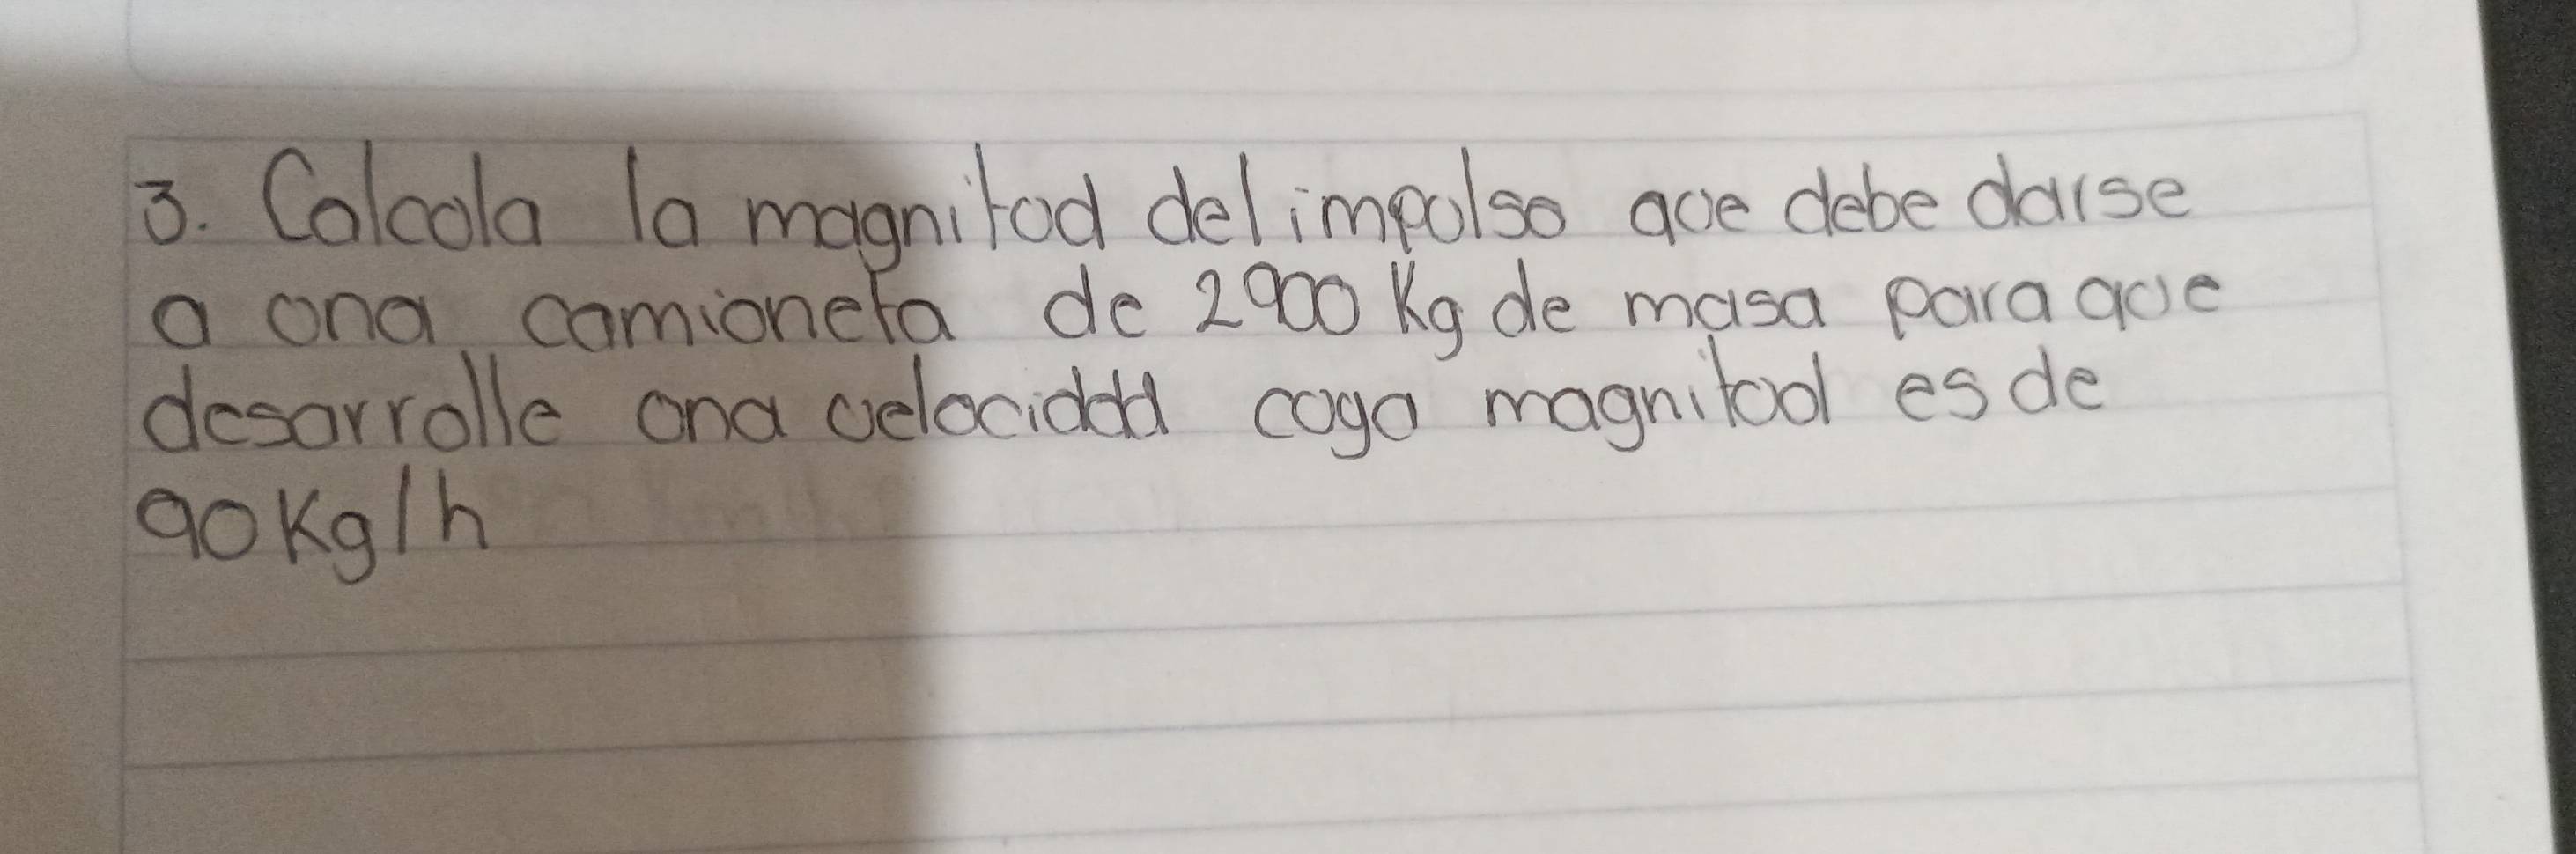 3. Calcula la magnitud del impulso que debe darse
a una camioneta de 2900 Kg de masa para que
desarrolle una velocidad cuya magnitud es de
90 Kg/h